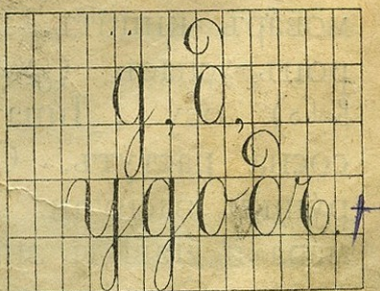 д, д,
удодъ.